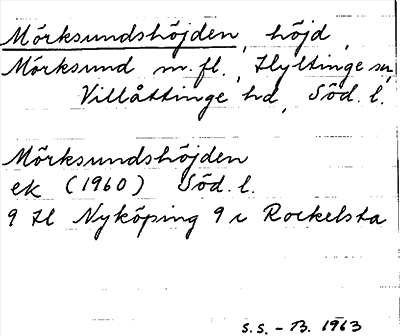 Mörksundshöjden, höjd,
Mörksund m. fl., Hyltinge sn,
Villåttinge hd, Söd. l.
Mörksundshöjden
ek (1960) Söd. l.
9 H Nyköping 9 c Rockelsta
S. S. - B. 1963